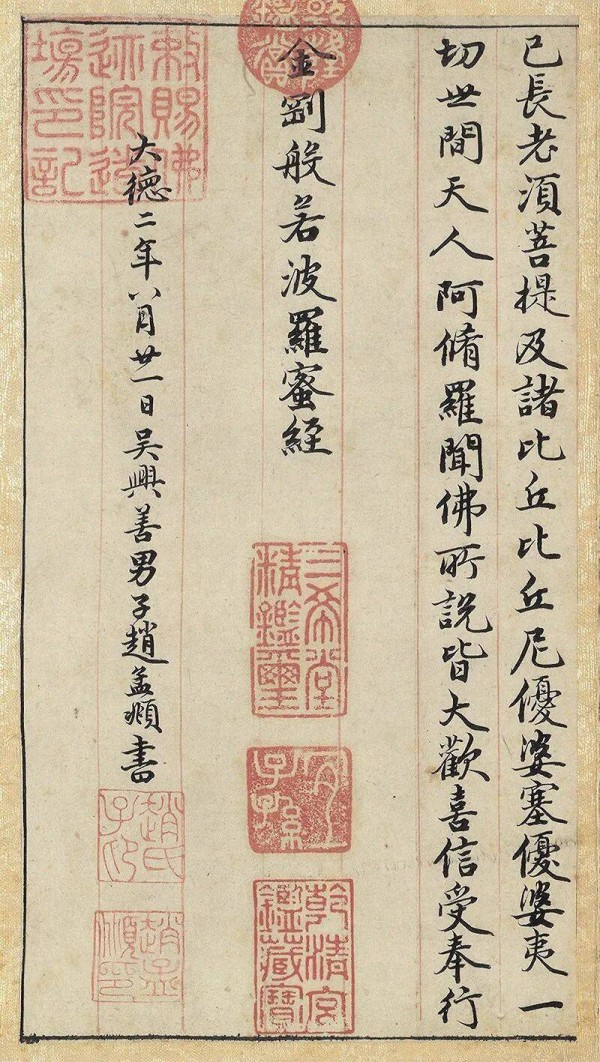 已長老須菩提及諸比丘比丘尼優婆塞優婆夷一
切世間天人阿脩羅聞佛所說皆大歡喜信受奉行
乾隆鑑賞
金剛般若波羅蜜經
三希堂
精鑑璽
宜
子孫
乾清宮
鑑藏寶
敕賜佛
迹院道
場印記
大德二年八月廿一日吳興善男子趙孟頫書
趙氏
子昂
趙孟
頫印